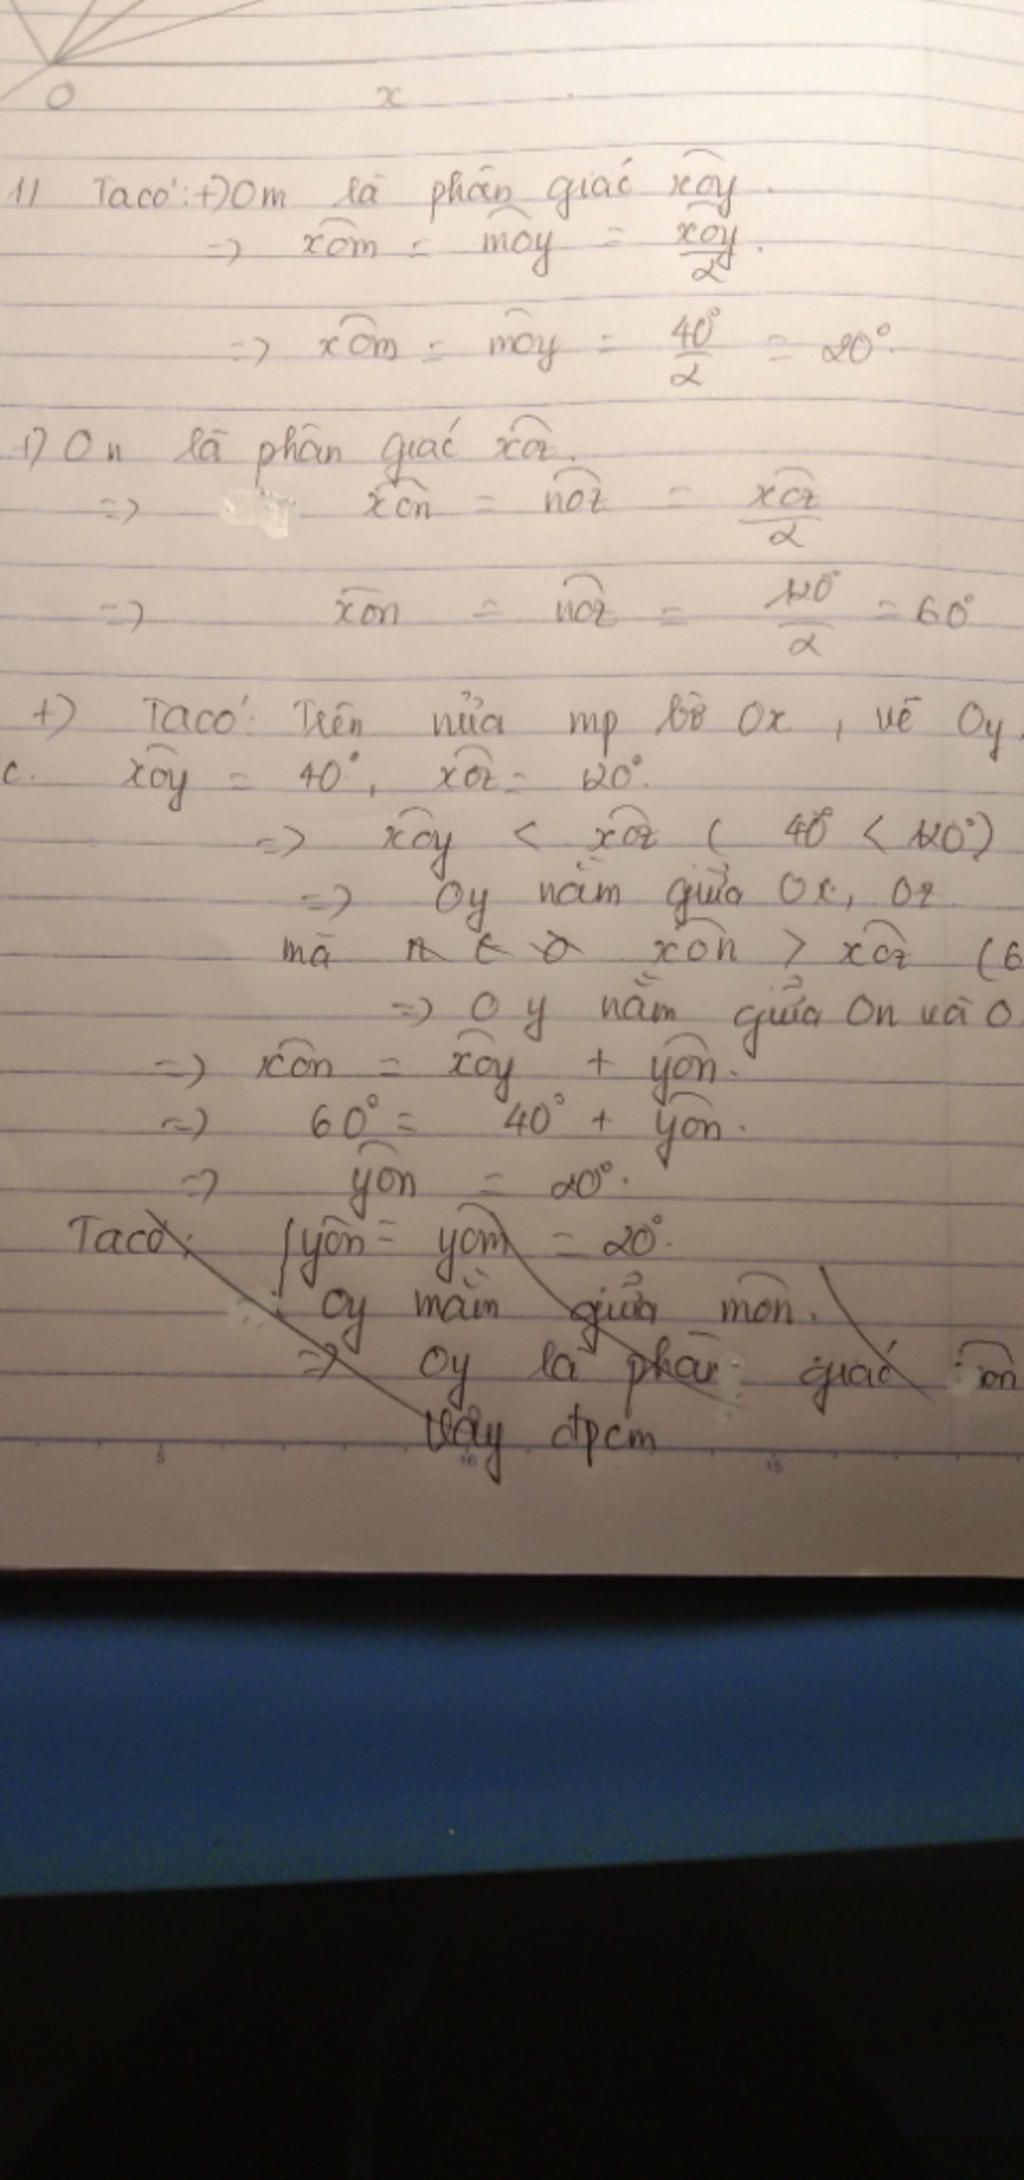 O x
1) Ta có: +) Om là phân giác xOy.
=> xOm = mOy = xOy/2.
=> xOm = mOy = 40°/2 = 20°.
+) On là phân giác xOz.
=> xOn = nOz = xOz/2
=> xOn = nOz = 120°/2 = 60°
+) Ta có: Trên nửa mp bờ Ox, vẽ Oy,
c. xOy = 40°, xOz = 120°.
=> xOy < xOz ( 40° < 120°)
=> Oy nằm giữa Ox, Oz
mà xOn > xOz (6
=> Oy nằm giữa On và O
=> xOn = xOy + yOn.
=> 60° = 40° + yOn.
=> yOn = 20°.
Ta có: yOn = yOm = 20°.
Oy nằm giữa mOn.
=> Oy là phân giác On
Vậy đpcm
5 10 15